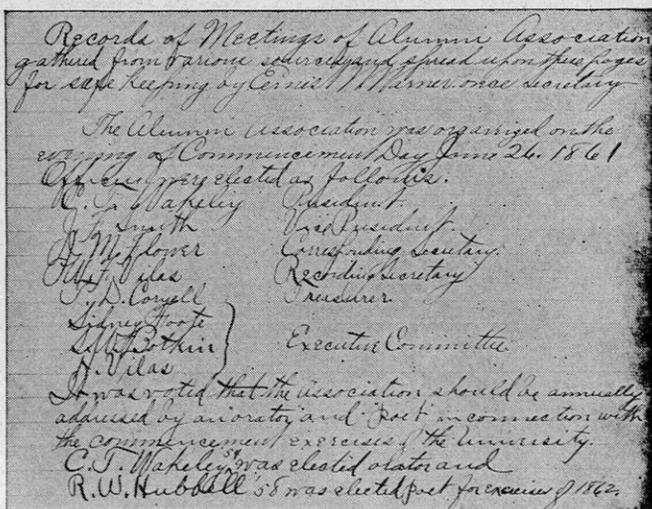 Records of Meetings of Alumni Association
gathered from various sources and spread upon these pages
for safe keeping by Ernest N. Warner once Secretary
The Alumni Association was organized on the
evening of Commencement Day June 26. 1861
Officers were elected as follows:
C. T. Wakeley President.
J. F. Smith Vice President.
J. M. Flower Corresponding Secretary.
Wm F. Vilas Recording Secretary
T. D. Coryell Treasurer.
Sidney Foote
S. W. Botkin Executive Committee
H. Vilas
It was voted that the association should be annually
addressed by an orator and "poet" in connection with
the commencement exercises of the University.
C. T. Wakeley, was elected orator and
R. W. Hubbell '58 was elected poet for exercises of 1862.